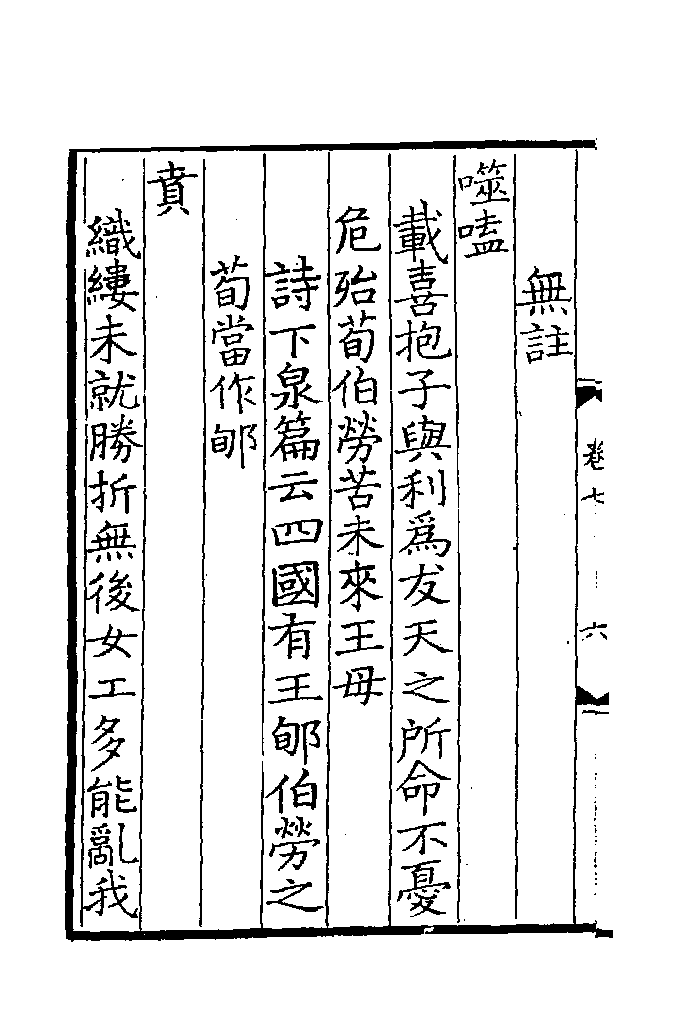 卷七
六
無註
噬嗑
載喜抱子與利為友天之所命不憂
危殆荀伯勞苦未來王母
詩下泉篇云四國有王郇伯勞之
荀當作郇
賁
織縷未就勝折無後女工多能亂我